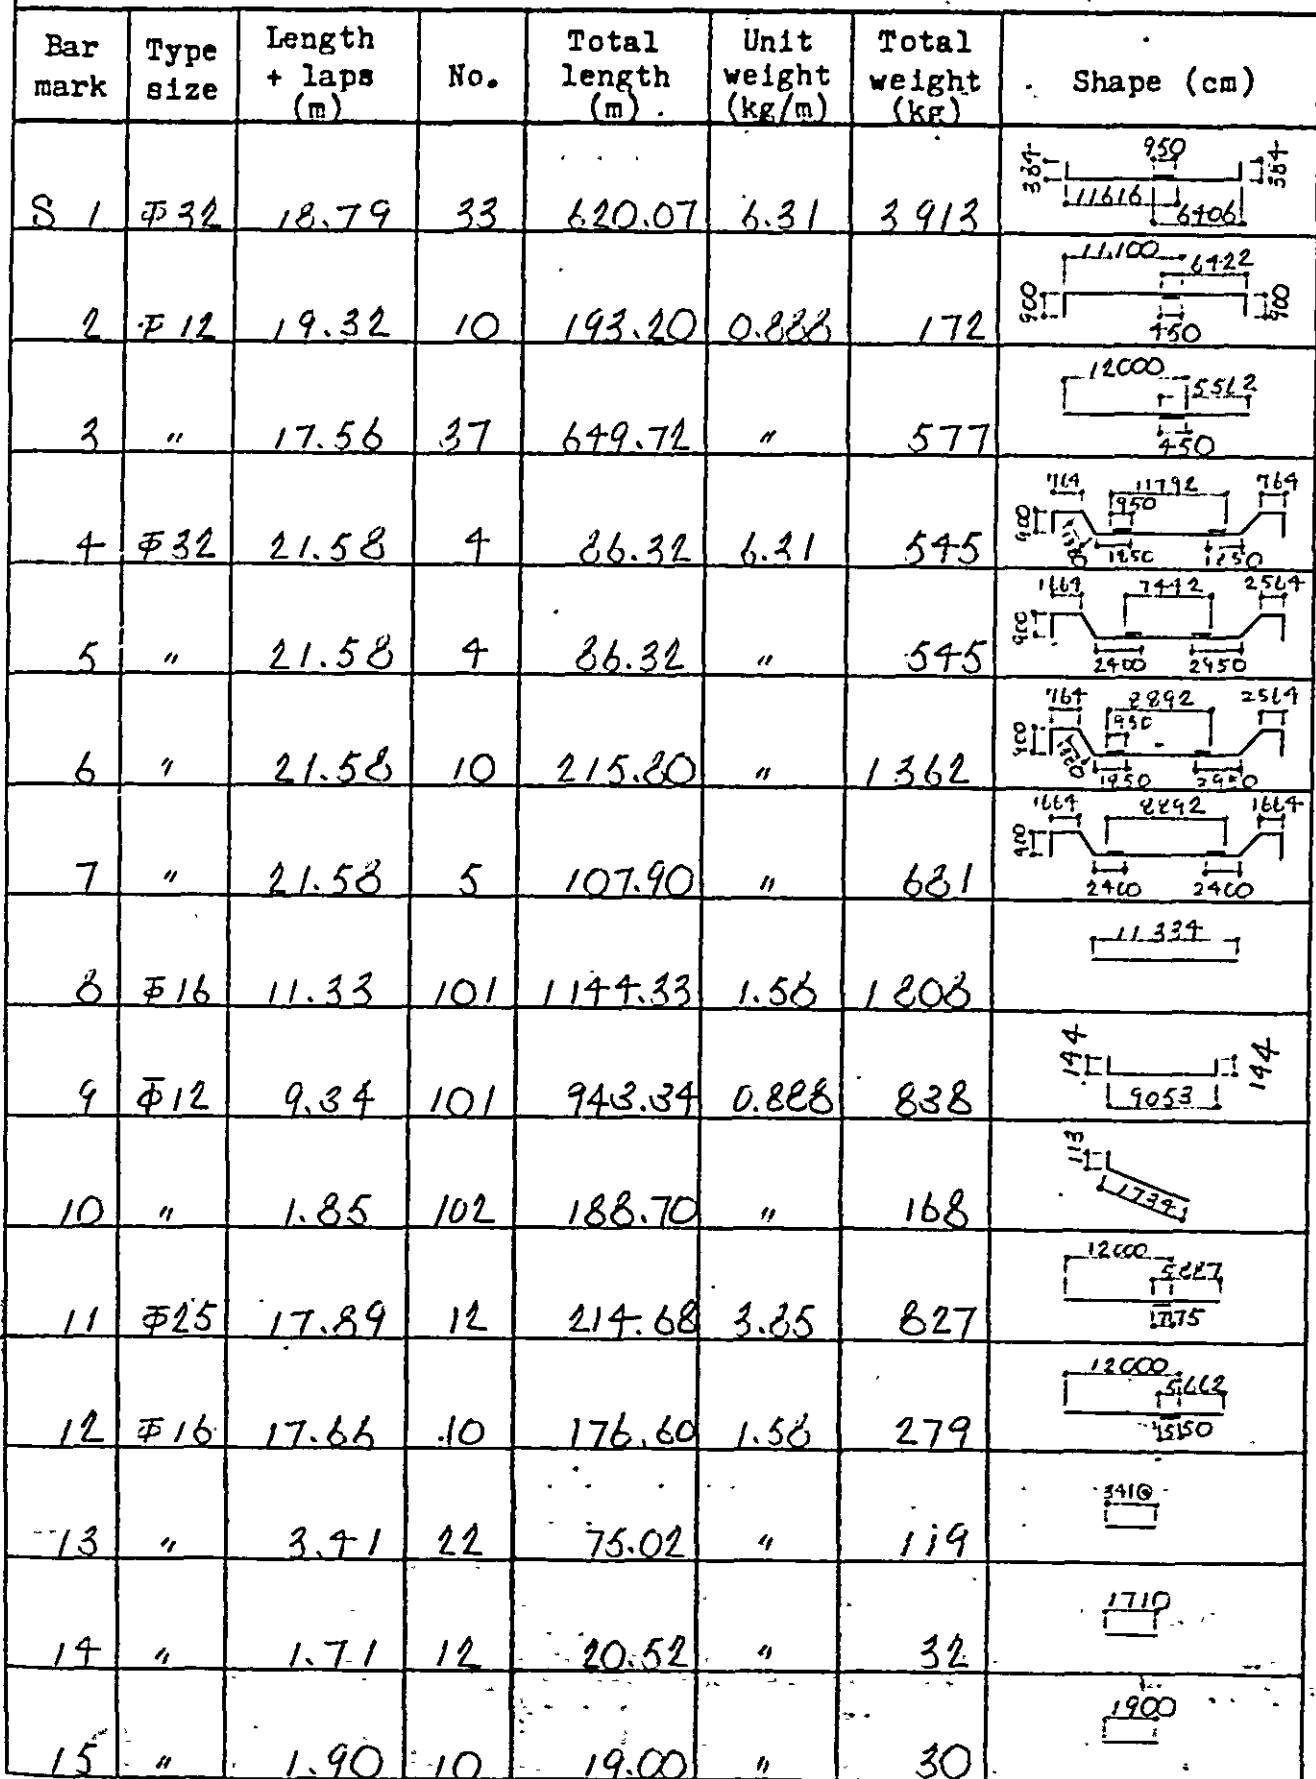 Bar mark Type size Length + laps (m) No. Total length (m) Unit weight (kg/m) Total weight (kg) Shape (cm)
S 1 Φ32 18.79 33 620.07 6.31 3 913 384 950 384 11616 6406
2 Φ12 19.32 10 193.20 0.888 172 900 11,100 6422 900 450
3 " 17.56 37 649.72 " 577 12000 5562 450
4 Φ32 21.58 4 86.32 6.31 545 764 11792 764 950 900 1250 1250
5 " 21.58 4 86.32 " 545 1664 7442 2564 900 2400 2450
6 " 21.58 10 215.80 " 1 362 764 8892 2564 950 900 1950
7 " 21.58 5 107.90 " 681 1664 8892 1664 900 2400 2400
8 Φ16 11.33 101 1 144.33 1.58 1 808 11 334
9 Φ12 9.34 101 943.34 0.888 838 144 144 9053
10 " 1.85 102 188.70 " 168 113 1734
11 Φ25 17.89 12 214.68 3.85 827 12000 5887
12 Φ16 17.66 10 176.60 1.58 279 12000 5662
13 " 3.41 22 75.02 " 119 3410
14 " 1.71 12 20.52 " 32 1710
15 " 1.90 10 19.00 " 30 1900